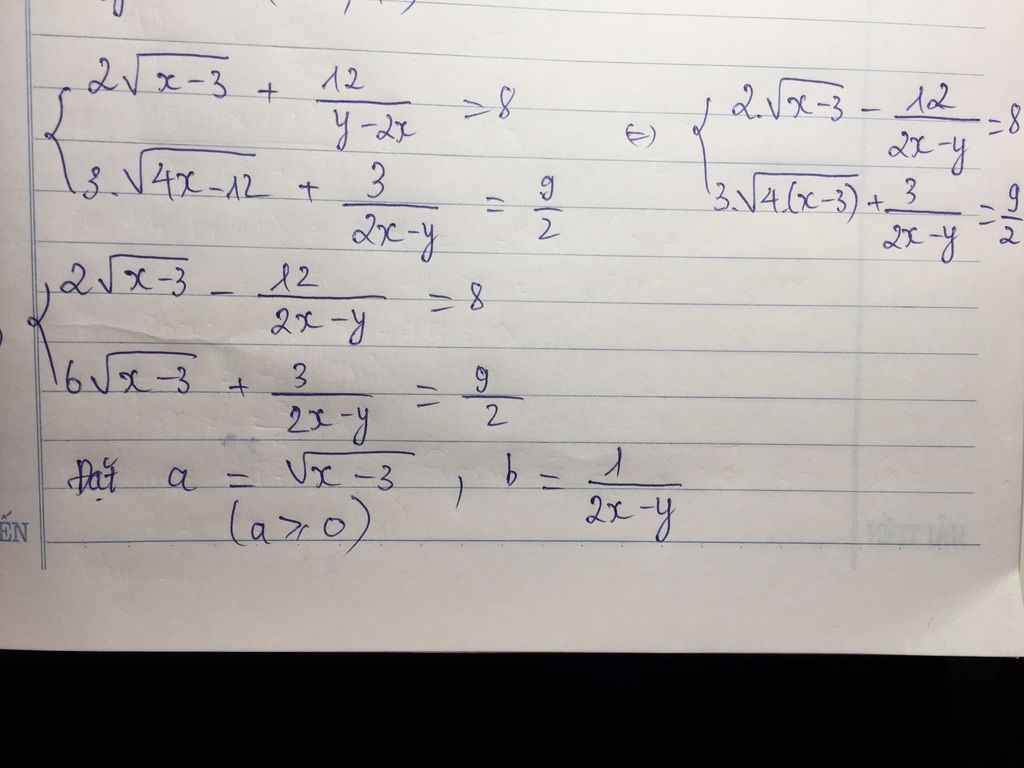 { 2√(x-3) + 12/(y-2x) = 8
3.√(4x-12) + 3/(2x-y) = 9/2
(=) { 2.√(x-3) - 12/(2x-y) = 8
3.√(4.(x-3)) + 3/(2x-y) = 9/2
{ 2√(x-3) - 12/(2x-y) = 8
6√(x-3) + 3/(2x-y) = 9/2
Đặt a = √(x-3) , b = 1/(2x-y)
(a ≥ 0)
ẾN
HẢI TIẾN